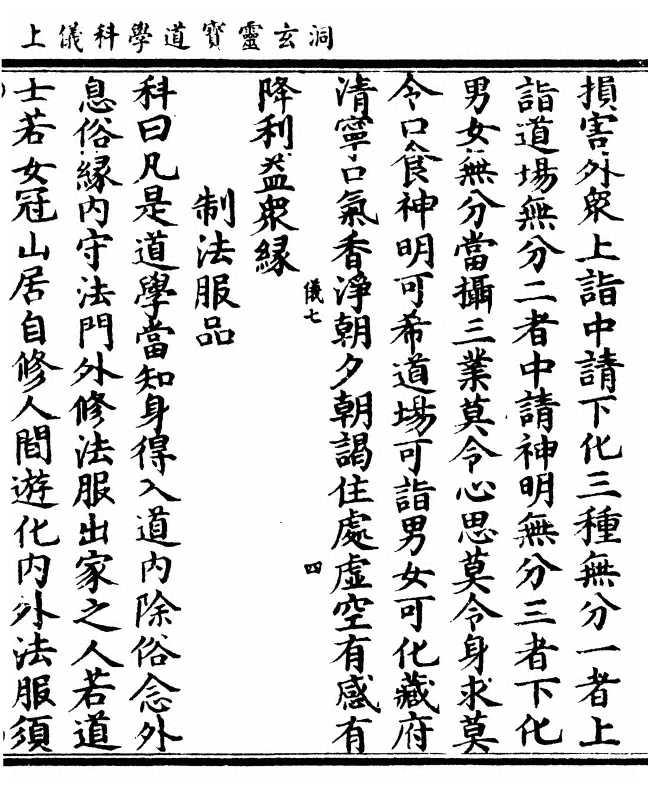 洞玄靈寶道學科儀上
損害外衆上詣中請下化三種無分一者上
詣道場無分二者中請神明無分三者下化
男女無分當攝三業莫令心思莫令身求莫
令口食神明可希道場可詣男女可化藏府
清寧口氣香淨朝夕朝謁住處虛空有感有
儀七
四
降利益衆緣
制法服品
科曰凡是道學當知身得入道內除俗念外
息俗緣內守法門外修法服出家之人若道
士若女冠山居自修人間遊化內外法服須